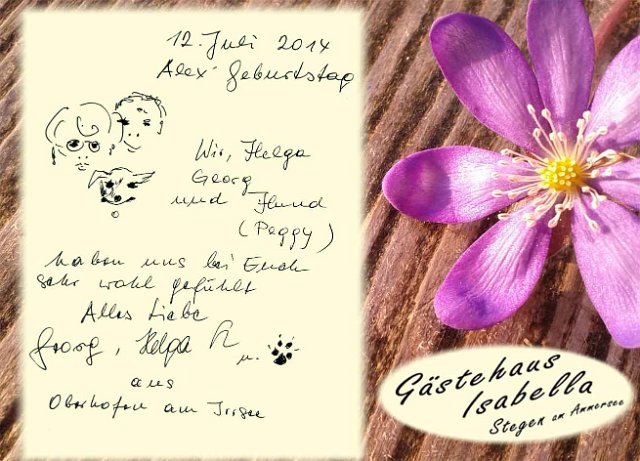 12. Juli 2014
Alex' Geburtstag
Wir, Helga
Georg
und Hund
(Peggy)
haben uns bei Euch
sehr wohl gefühlt
Alles Liebe
Georg, Helga
u.
aus
Oberhofen am Irrsee
Gästehaus
Isabella
Stegen am Ammersee